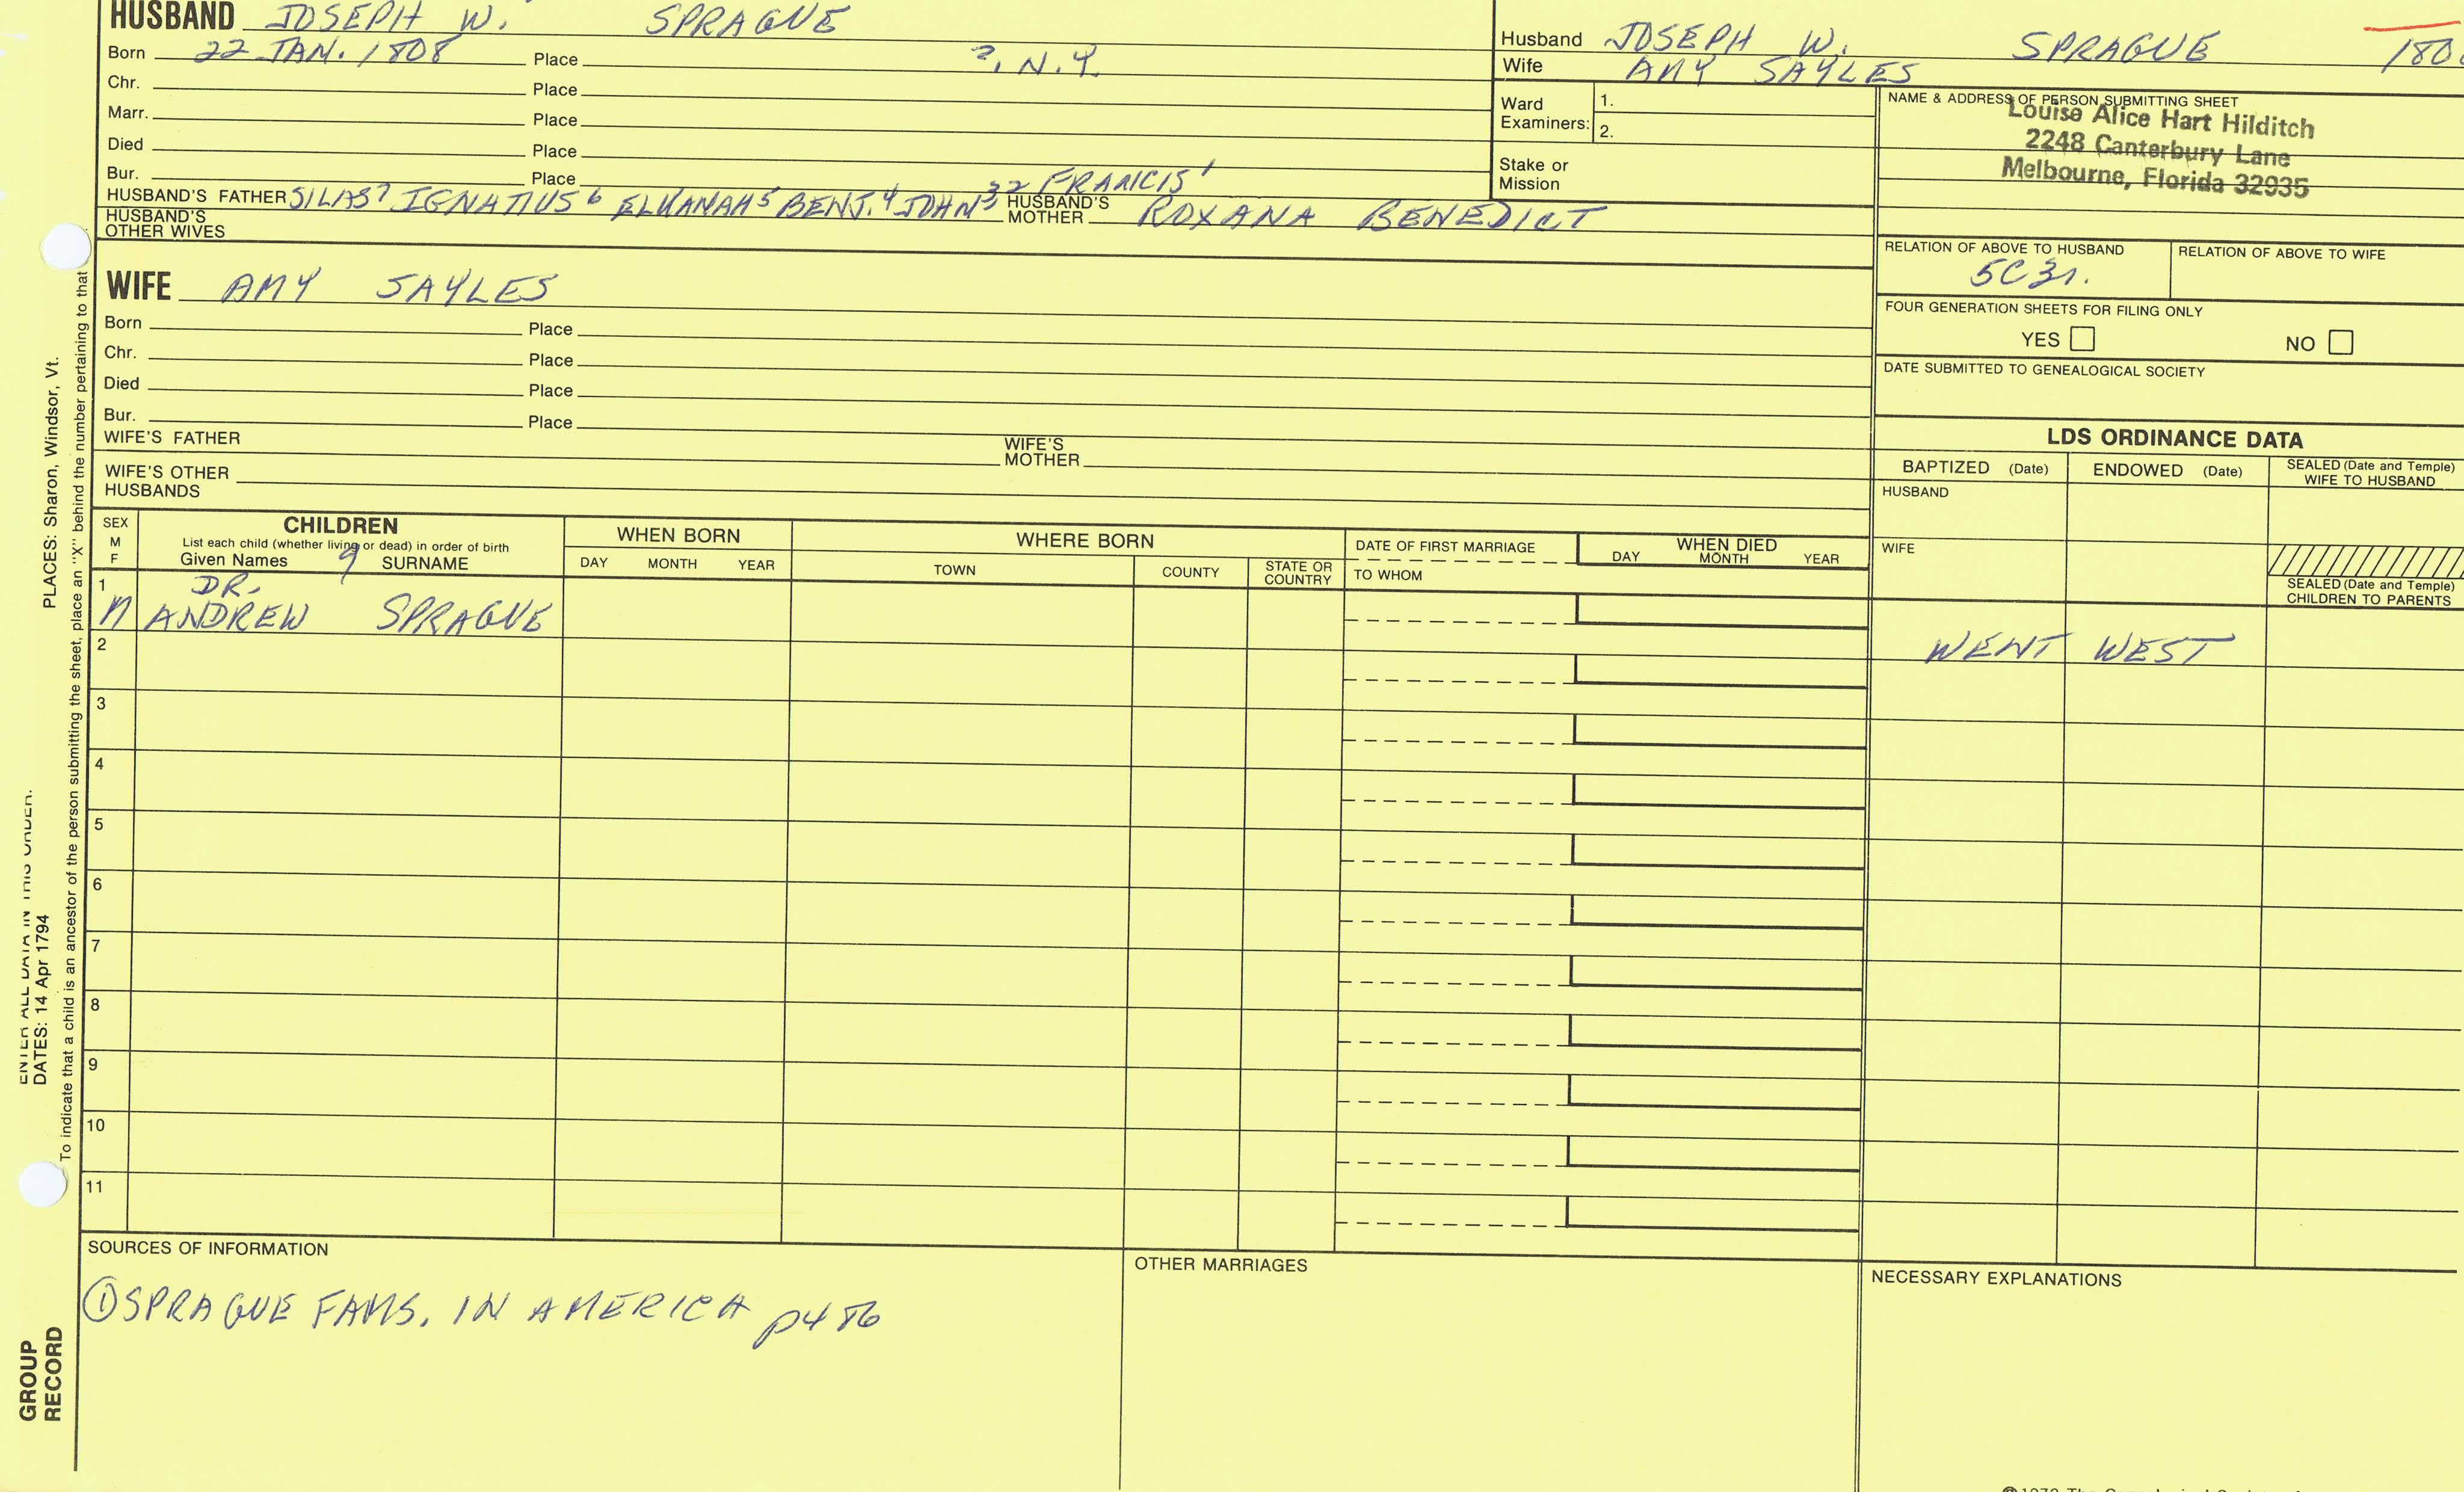 HUSBAND JOSEPH W. SPRAGUE
Born 22 JAN. 1808 Place ?, N.Y.
Chr. Place
Marr. Place
Died Place
Bur. Place
HUSBAND'S FATHER SILAS7 IGNATIUS6 ELKANAH5 BENJ.4 JOHN32 FRANCIS1 HUSBAND'S MOTHER ROXANA BENEDICT
HUSBAND'S OTHER WIVES
WIFE AMY SAYLES
Born Place
Chr. Place
Died Place
Bur. Place
WIFE'S FATHER WIFE'S MOTHER
WIFE'S OTHER HUSBANDS
Husband JOSEPH W. SPRAGUE 180
Wife AMY SAYLES
Ward Examiners: 1.
2.
Stake or Mission
NAME & ADDRESS OF PERSON SUBMITTING SHEET
Louise Alice Hart Hilditch
2248 Canterbury Lane
Melbourne, Florida 32935
RELATION OF ABOVE TO HUSBAND RELATION OF ABOVE TO WIFE
5C3r.
FOUR GENERATION SHEETS FOR FILING ONLY
YES NO
DATE SUBMITTED TO GENEALOGICAL SOCIETY
LDS ORDINANCE DATA
BAPTIZED (Date) ENDOWED (Date) SEALED (Date and Temple) WIFE TO HUSBAND
HUSBAND
WIFE
SEALED (Date and Temple) CHILDREN TO PARENTS
WENT WEST
SEX M F
CHILDREN
List each child (whether living or dead) in order of birth
Given Names 9 SURNAME
WHEN BORN
DAY MONTH YEAR
WHERE BORN
TOWN COUNTY STATE OR COUNTRY
DATE OF FIRST MARRIAGE
TO WHOM
WHEN DIED
DAY MONTH YEAR
1 DR.
M ANDREW SPRAGUE
2
3
4
5
6
7
8
9
10
11
SOURCES OF INFORMATION
① SPRAGUE FAMS. IN AMERICA p486
OTHER MARRIAGES
NECESSARY EXPLANATIONS
ENTER ALL DATA IN THIS ORDER.
DATES: 14 Apr 1794
PLACES: Sharon, Windsor, Vt.
To indicate that a child is an ancestor of the person submitting the sheet, place an "X" behind the number pertaining to that
GROUP
RECORD